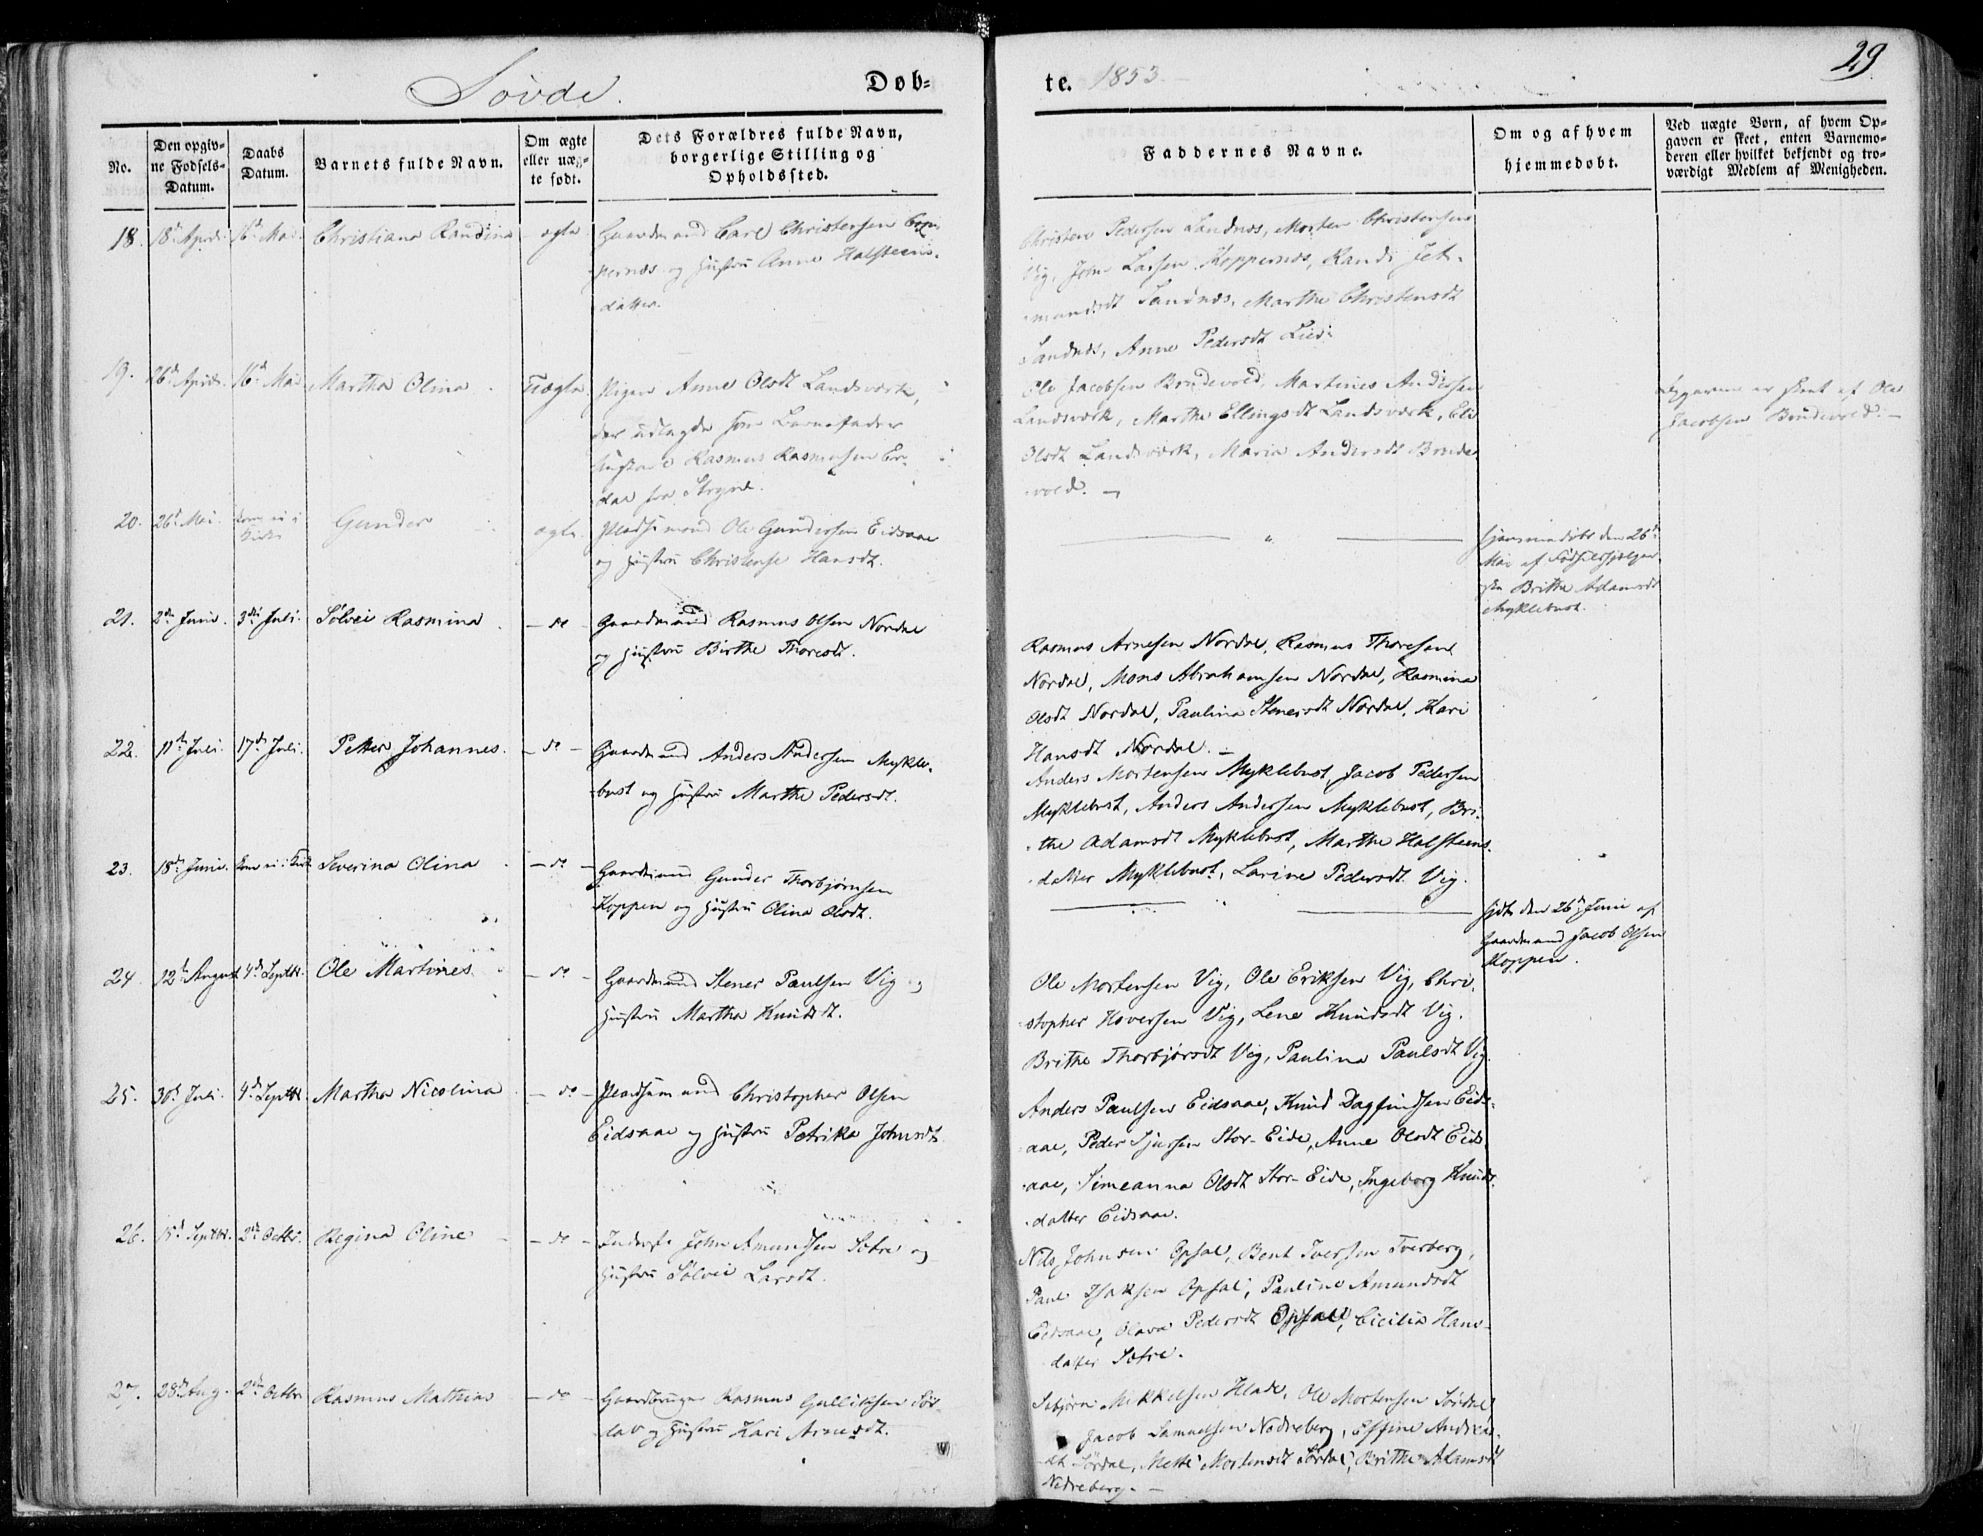 Søvde. Døb=
te. 1853.
29
No.
Den opgiv=
ne Fødsels=
Datum.
Daabs
Datum.
Barnets fulde Navn.
Om ægte
eller uæg=
te født.
Dets Forældres fulde Navn,
borgerlige Stilling og
Opholdssted.
Faddernes Navne.
Om og af hvem
hjemmedøbt.
Ved uægte Børn, af hvem Op=
gaven er skeet, enten Barnemo=
deren eller hvilket bekjendt og tro=
værdigt Medlem af Menigheden.
18. 18de April. 16de Mai Christiana Randina ægte Gaardmand Carl Christensen Kop
pernæs og Hustru Anne Halsteens
datter.
Christen Pedersen Landnæs, Morten Christensen
Vig, John Larsen Koppernæs, Randi Jet
mundsdt Sandnæs, Marthe Christensdt
Sandnæs, Anne Pedersdt
19. 26de April. 16de Mai Martha Olina Uægte Pigen Anne Olsdt Landsværk,
der udlagde som Barnefader
Rasmus Rasmussen
fra Stryn.
Ole Jacobsen Brudevold, Martines Andersen
Landsværk, Marthe Ellingsdt Landsværk, Eli
Olsdt Landsværk, Maria Andersdt Brude
vold.
Opgaven er skeet af Ole
Jacobsen Brudevold.
20. 26de Mai. Kom ei i
Kirke
Gunder ægte Pladsmand Ole Gundersen Eidsaae
og Hustru Christense Hansdt.
Hjemmedøbt den 26de
Mai af Fødselshjelper
sken Brithe Adamsdt
Myklebust.
21. 2den Junii. 3die Juli. Sølvei Rasmina - do Gaardmand Rasmus Olsen Nordal
og Hustru Birthe Thoresdt.
Rasmus Arnesen Nordal, Rasmus Thoresen
Nordal, Mons Abrahamsen Nordal, Rasmina
Olsdt Nordal, Paulina Stenersdt Nordal, Kari
Hansdt Nordal.
22. 11de Juli. 17de Juli. Petter Johannes. - do - Gaardmand Anders Andersen Mykle
bust og Hustru Marthe Pedersdt.
Anders Mortensen Myklebust, Jacob Pedersen
Myklebust, Anders Andersen Myklebust, Bri
the Adamsdt Myklebust, Marthe Halsteens
datter Myklebust, Larine Pedersdt Vig.
23. 18de Junii. Kom ei i Kirke Severina Olina - do - Gaardmand Gunder Thorbjørnsen
Koppen og Hustru Olina Olsdt.
Hjdt. den 26de Junii af
Gaardmand Jacob Olsen
Koppen.
24. 12te August 4de Septbr. Ole Martines - do - Gaardmand Stener Paulsen Vig og
Hustru Martha Knudsdt.
Ole Mortensen Vig, Ole Eriksen Vig, Chri
stopher Haversen Vig, Lene Knudsdt Vig.
Brithe Thorbjørsdt Vig, Paulina Paulsdt Vig.
25. 30te Juli 4de Septbr. Martha Nicolina - do - Pladsmand Christopher Olsen
Eidsaae og Hustru Petrika Johnsdt.
Anders Paulsen Eidsaae, Knud Dagfindsen Eids
aae, Peder Sjursen Stor-Eide, Anne Olsdt Eids
aae, Simeanna Olsdt Stor-Eide, Ingeborg Knuds
datter Eidsaae.
26. 15de Septbr. 2den Octbr. Regina Oline - do - Inderste John Amundsen Sætre og
Hustru Sølvei Larsdt.
Nils Johnsen Opsal, Bent Iversen Tverberg,
Paul Isaksen Opsal, Pauline Amundsdt
Eidsaae, Olava Pedersdt Opsal, Cicilia Hans
datter Sætre.
27. 28de Aug. 2den Octbr. Rasmus Mathias - do Gaardbruger Rasmus Gulliksen Sør
dal og Hustru Kari Arnesdt.
Sebjørn Mikkelsen Hlade, Ole Mortensen Sørdal
Jacob Samuelsen Nedreberg, Effine Andrea
dt Sørdal, Mette Mortensdt Sørdal, Brithe Adamsdt
Nedreberg.